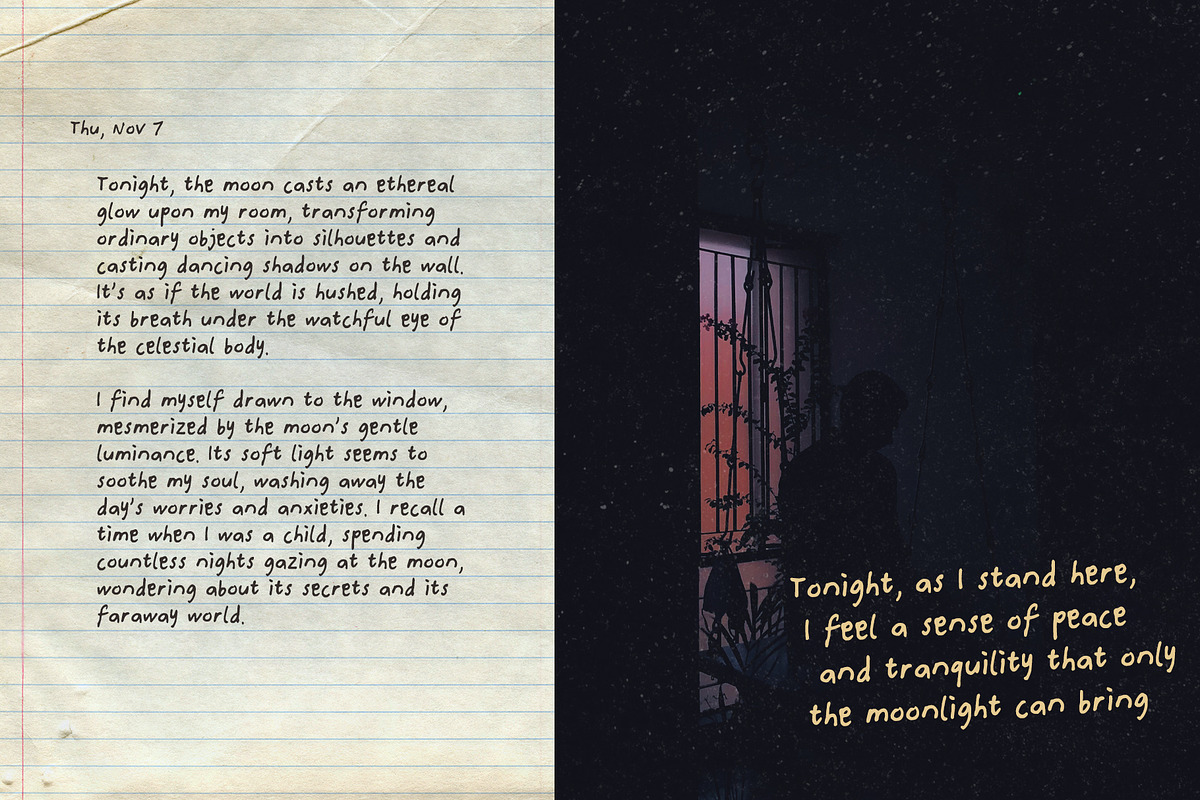 Thu, Nov 7
Tonight, the moon casts an ethereal
glow upon my room, transforming
ordinary objects into silhouettes and
casting dancing shadows on the wall.
It's as if the world is hushed, holding
its breath under the watchful eye of
the celestial body.
I find myself drawn to the window,
mesmerized by the moon's gentle
luminance. Its soft light seems to
soothe my soul, washing away the
day's worries and anxieties. I recall a
time when I was a child, spending
countless nights gazing at the moon,
wondering about its secrets and its
faraway world.
Tonight, as I stand here,
I feel a sense of peace
and tranquility that only
the moonlight can bring